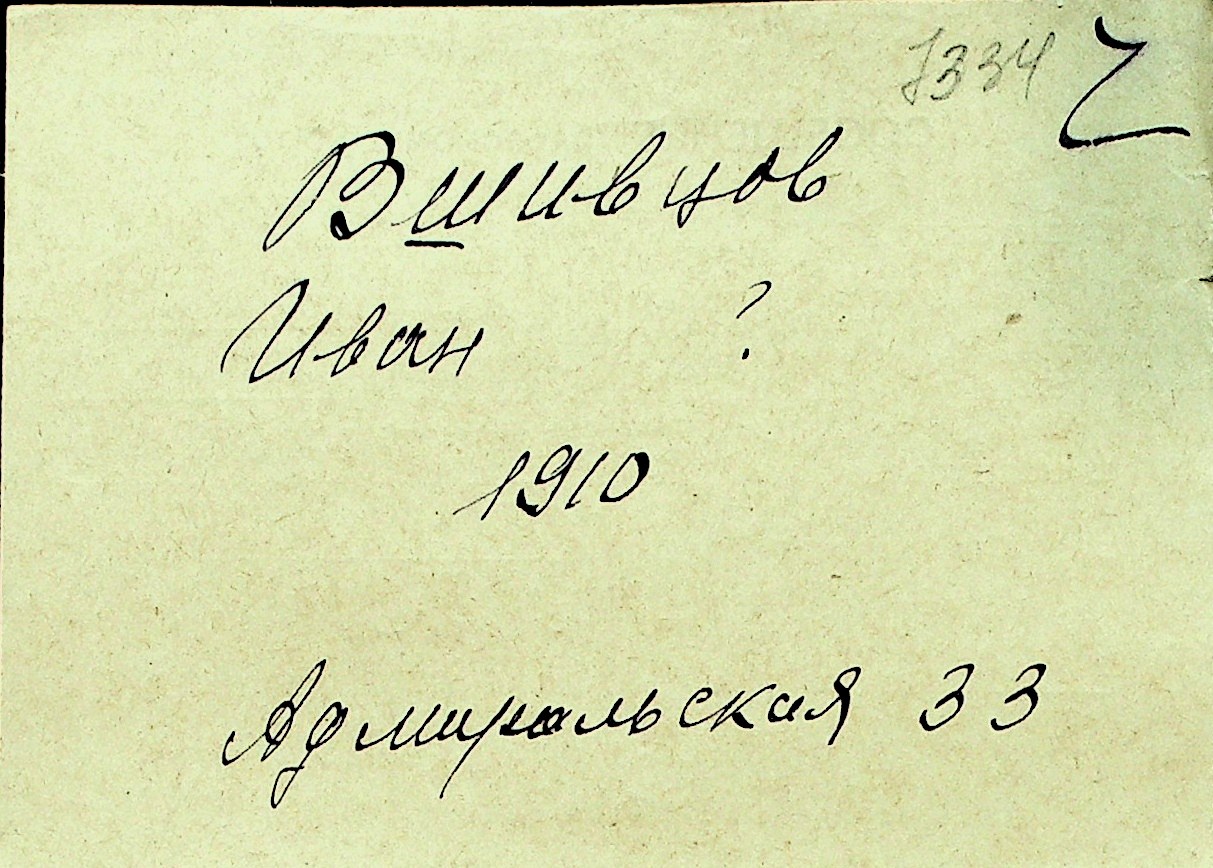 7334
Вшивцов
Иван ?
1910
Адмиральская 33